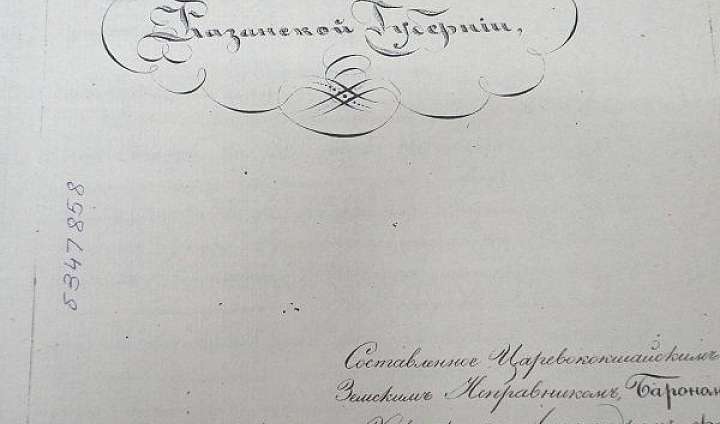 Казанской Губерніи,
5347858
3
Составленное Царевококшайскимъ
Земскимъ Исправникомъ, Барономъ